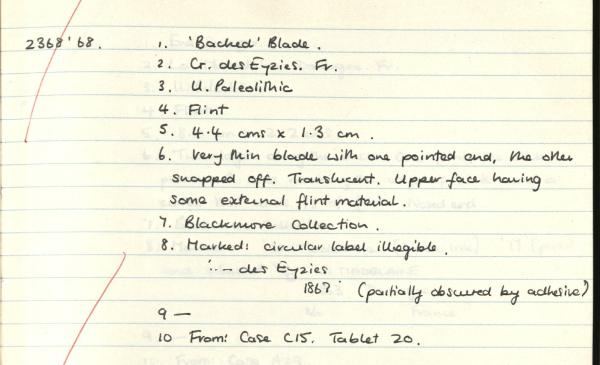 2368'68. 1. 'Backed' Blade.
2. Cr. des Eyzies. Fr.
3. U. Paleolithic
4. Flint
5. 4.4 cms x 1.3 cm.
6. Very thin blade with one pointed end, the other
snapped off. Translucent. Upper face having
some external flint material.
7. Blackmore Collection.
8. Marked: circular label illegible.
'... des Eyzies
186? (partially obscured by adhesive)
9 —
10 From: Case C15. Tablet 20.